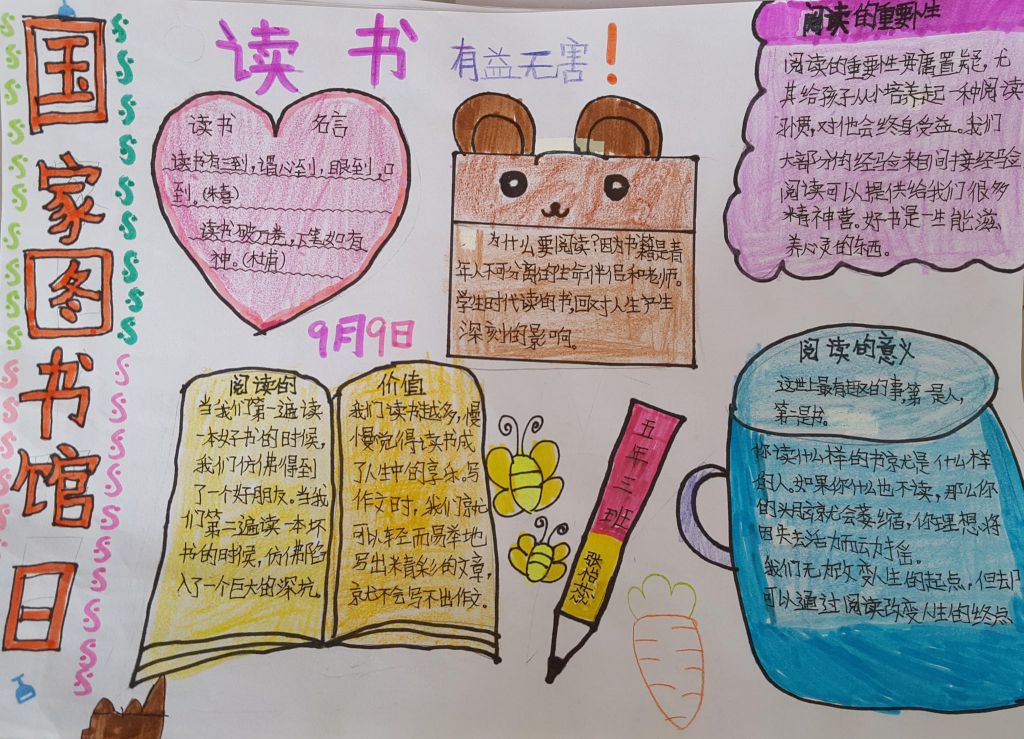 国家图书馆日
读书
有益无害！
读书 名言
读书有三到，谓心到，眼到。口
到。(朱熹)
读书破万卷，下笔如有
神。(杜甫)
9月9日
为什么要阅读?因为书籍是青
年人不可分离的生命伴侣和老师。
学生时代读的书，回对人生产生
深刻的影响。
阅读的重要性
阅读的重要性毋庸置疑，尤
其给孩子从小培养起一种阅读
习惯，对他会终身受益。我们
大部分的经验来自间接经验
阅读可以提供给我们很多
精神营。好书是一生能滋
养心灵的东西。
阅读的
当我们第一遍读
一本好书的时候，
我们仿佛得到
了一个好朋友。当我
们第二遍读一本坏
书的时候，仿佛陷
入了一个巨大的深坑。
价值
我们读书越多，慢
慢觉得读书成
了人生中的享乐。写
作文时，我们就
可以轻而易举地
写出精彩的文章，
就不会写不出作文。
五年三班
张柏蕊
阅读的意义
这世上最有趣的事，第一是人，
第二是书。
你读什么样的书就是什么样
的人。如果你什么也不读，那么你
的头脑就会萎缩，你理想将
因失去活力而动摇。
我们无力改变人生的起点，但却
可以通过阅读改变人生的终点